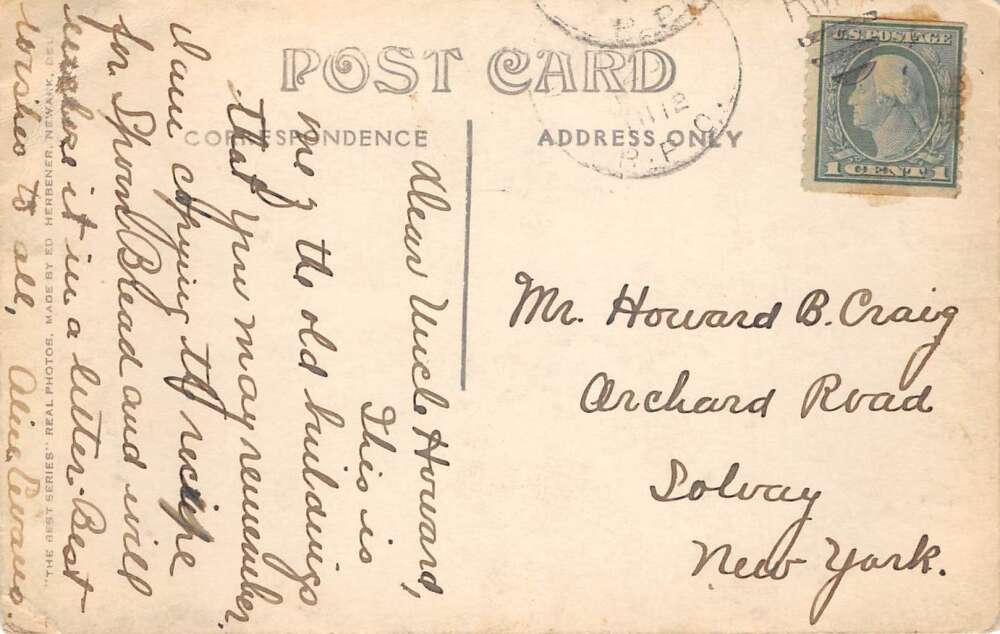 POST CARD
CORRESPONDENCE
ADDRESS ONLY
U.S. POSTAGE
1 CENT 1
R.P.O.
Dear Uncle Howard,
This is
one of the old buildings
that you may remember.
I am copying the recipe
for Spoon Bread and will
enclose it in a letter. Best
wishes to all,
Aline Evans.
Mr. Howard B. Craig
Orchard Road
Solvay
New York.
"THE BEST SERIES" REAL PHOTOS, MADE BY ED HERBENER, NEWARK, DEL.